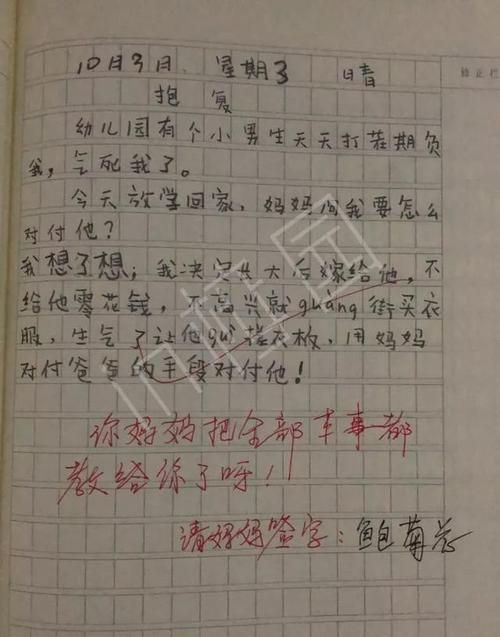 10月3日 星期3 晴
修正栏
抱复
幼儿园有个小男生天天打若期负
我,气死我了。
今天放学回家,妈妈问我要怎么
对付他?
我想了想,我决定长大后嫁给他,不
给他零花钱,不高兴就guàng街买衣
服,生气了让他guì搓衣板,用妈妈
对付爸爸的手段对付他!
你妈妈把全部本事都
教给你了呀!
请妈妈签字:鲍菊芯